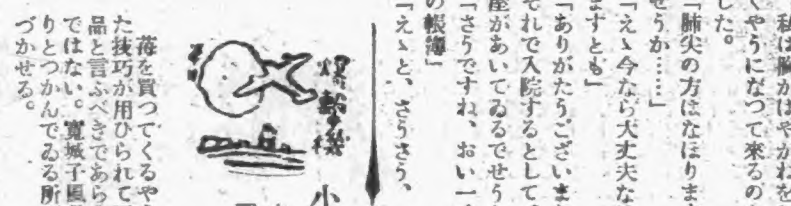 私は胸がはやがねを
くやうになつて来るの
した。
「肺尖の方はなほりま
せうか……」
「えゝ今なら大丈夫な
ますとも」
「ありがたうございま
それで入院するとして
座があいてゐるでせう
「さうですね、おい一
の帳簿」
「えゝと、さうさう、
爆撃機 小
苺を買つてくるや
た技巧が用ひられて
品と言ふべきであら
ではない。寛城子園
りとつかんでゐる所
づかせる。